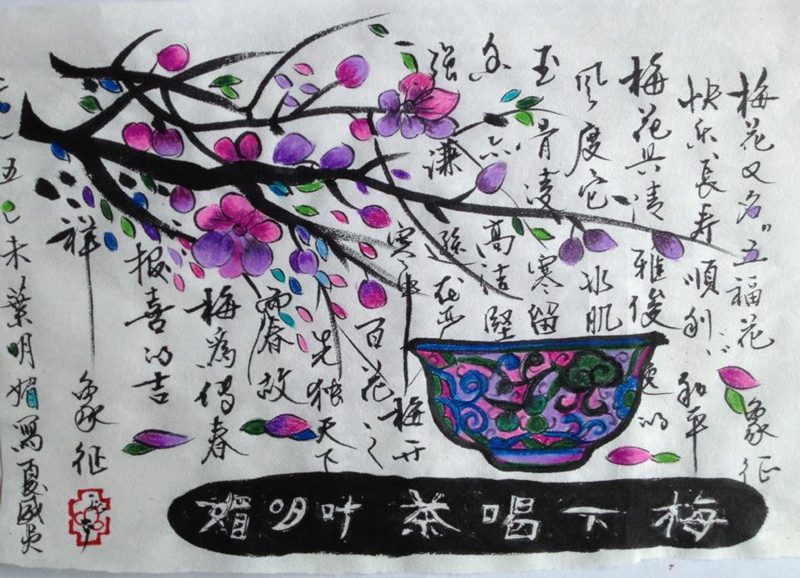 梅花又名"五福花"象征
快乐长寿顺利和平
梅花具清雅俊逸的
风度它冰肌
玉骨凌寒留
高洁坚
强谦 在严
寒中梅开
百花之
先独天下
而春故
梅为传春
报喜的吉
祥象征
五乙未葉明媚寫夏威夷
梅下喝茶 叶明媚